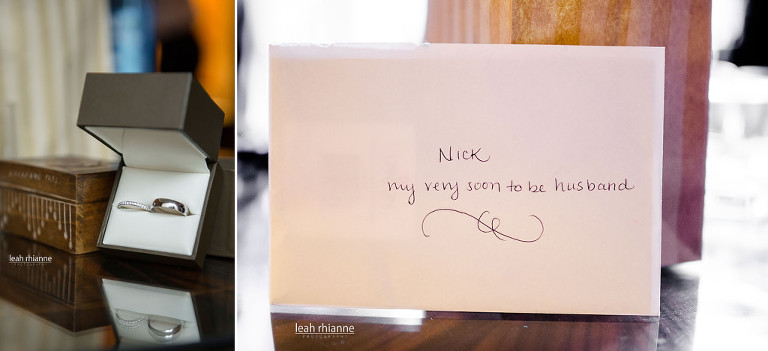 leah rhianne
PHOTOGRAPHY
Nick
my very soon to be husband
leah rhianne
PHOTOGRAPHY